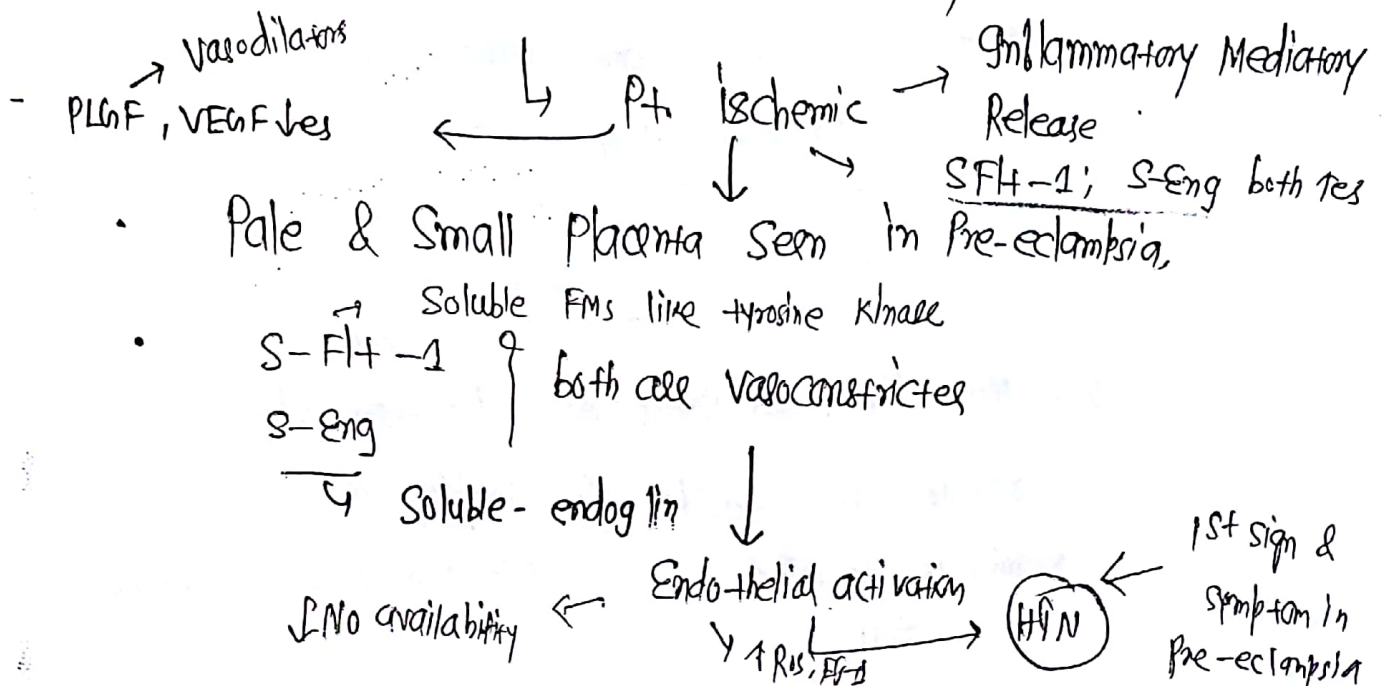 vasodilators
PLGF, VEGF ↓es
Pt. ischemic
Inflammatory Mediatory
Release
SFlt-1; S-Eng both ↑es
Pale & Small Placenta Seen in Pre-eclampsia,
Soluble FMS like tyrosine kinase
S-Flt-1
both are vasoconstricter
S-Eng
Soluble-endoglin
Endothelial activaion
↓NO availability
↑ Ros;
HTN
1st sign &
symptom in
Pre-eclampsia